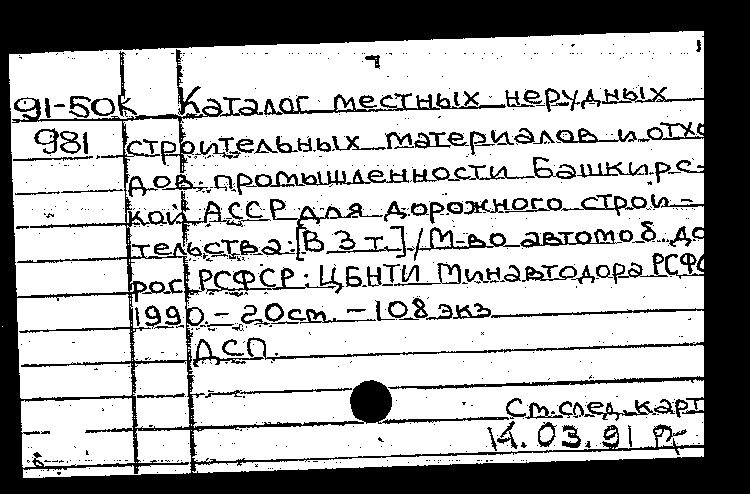 91-50К Каталог местных нерудных
981 строительных материалов и отхо
дов промышленности Башкирс-
кой АССР для дорожного строи-
тельства: [В 3 т.] / М-во автомоб. до
рог РСФСР: ЦБНТИ Минавтодора РСФС
1990. - 20см. - 108 экз
ДСП.
См. след. карт
14.03.91